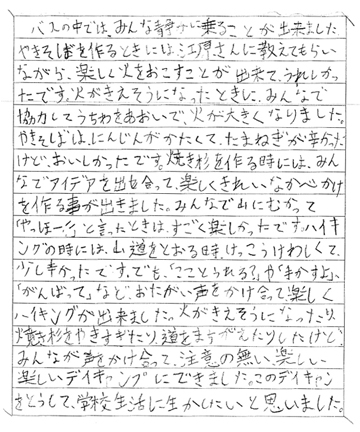 バスの中では、みんな静かに乗ることが出来ました。
やきそばを作るときには、江原さんに教えてもらい
ながら、楽しく火をおこすことが出来て、うれしかっ
たです。火がきえそうになったときに、みんなで
協力してうちわをあおいで、火が大きくなりました。
やきそばは、にんじんがかたくて、たまねぎが辛かった
けど、おいしかったです。焼き杉を作る時には、みん
なでアイデアを出し合って、楽しくきれいなかべかけ
を作る事が出きました。みんなで山にむかって
「やっほー」と言ったときは、すごく楽しかったです。ハイキ
ングの時には、山道をとおる時、けっこうけわしくて、
少し辛かったです。でも、「こことられる？」や「まかすよ」、
「がんばって」など、おたがい声をかけ合って楽しく
ハイキングが出来ました。火がきえそうになったり、
焼き杉をやきすぎたり、道をまちがえたりしたけど、
みんなが声をかけ合って、注意の無い、楽しい
楽しいデイキャンプにできました。このデイキャン
をとうして、学校生活に生かしたいと思いました。